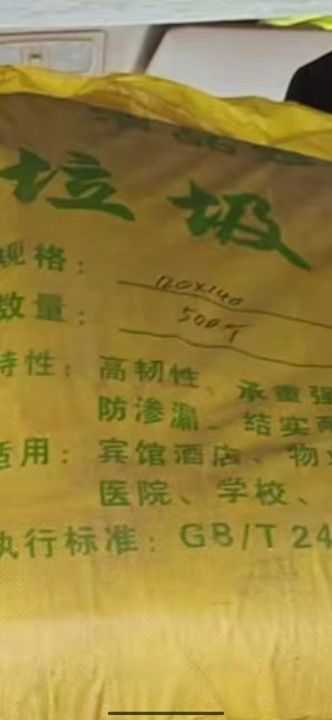 垃圾
规格：120×140
数量：500个
特性：高韧性、承重强
防渗漏、结实
适用：宾馆酒店、物业
医院、学校、
执行标准：GB/T 24